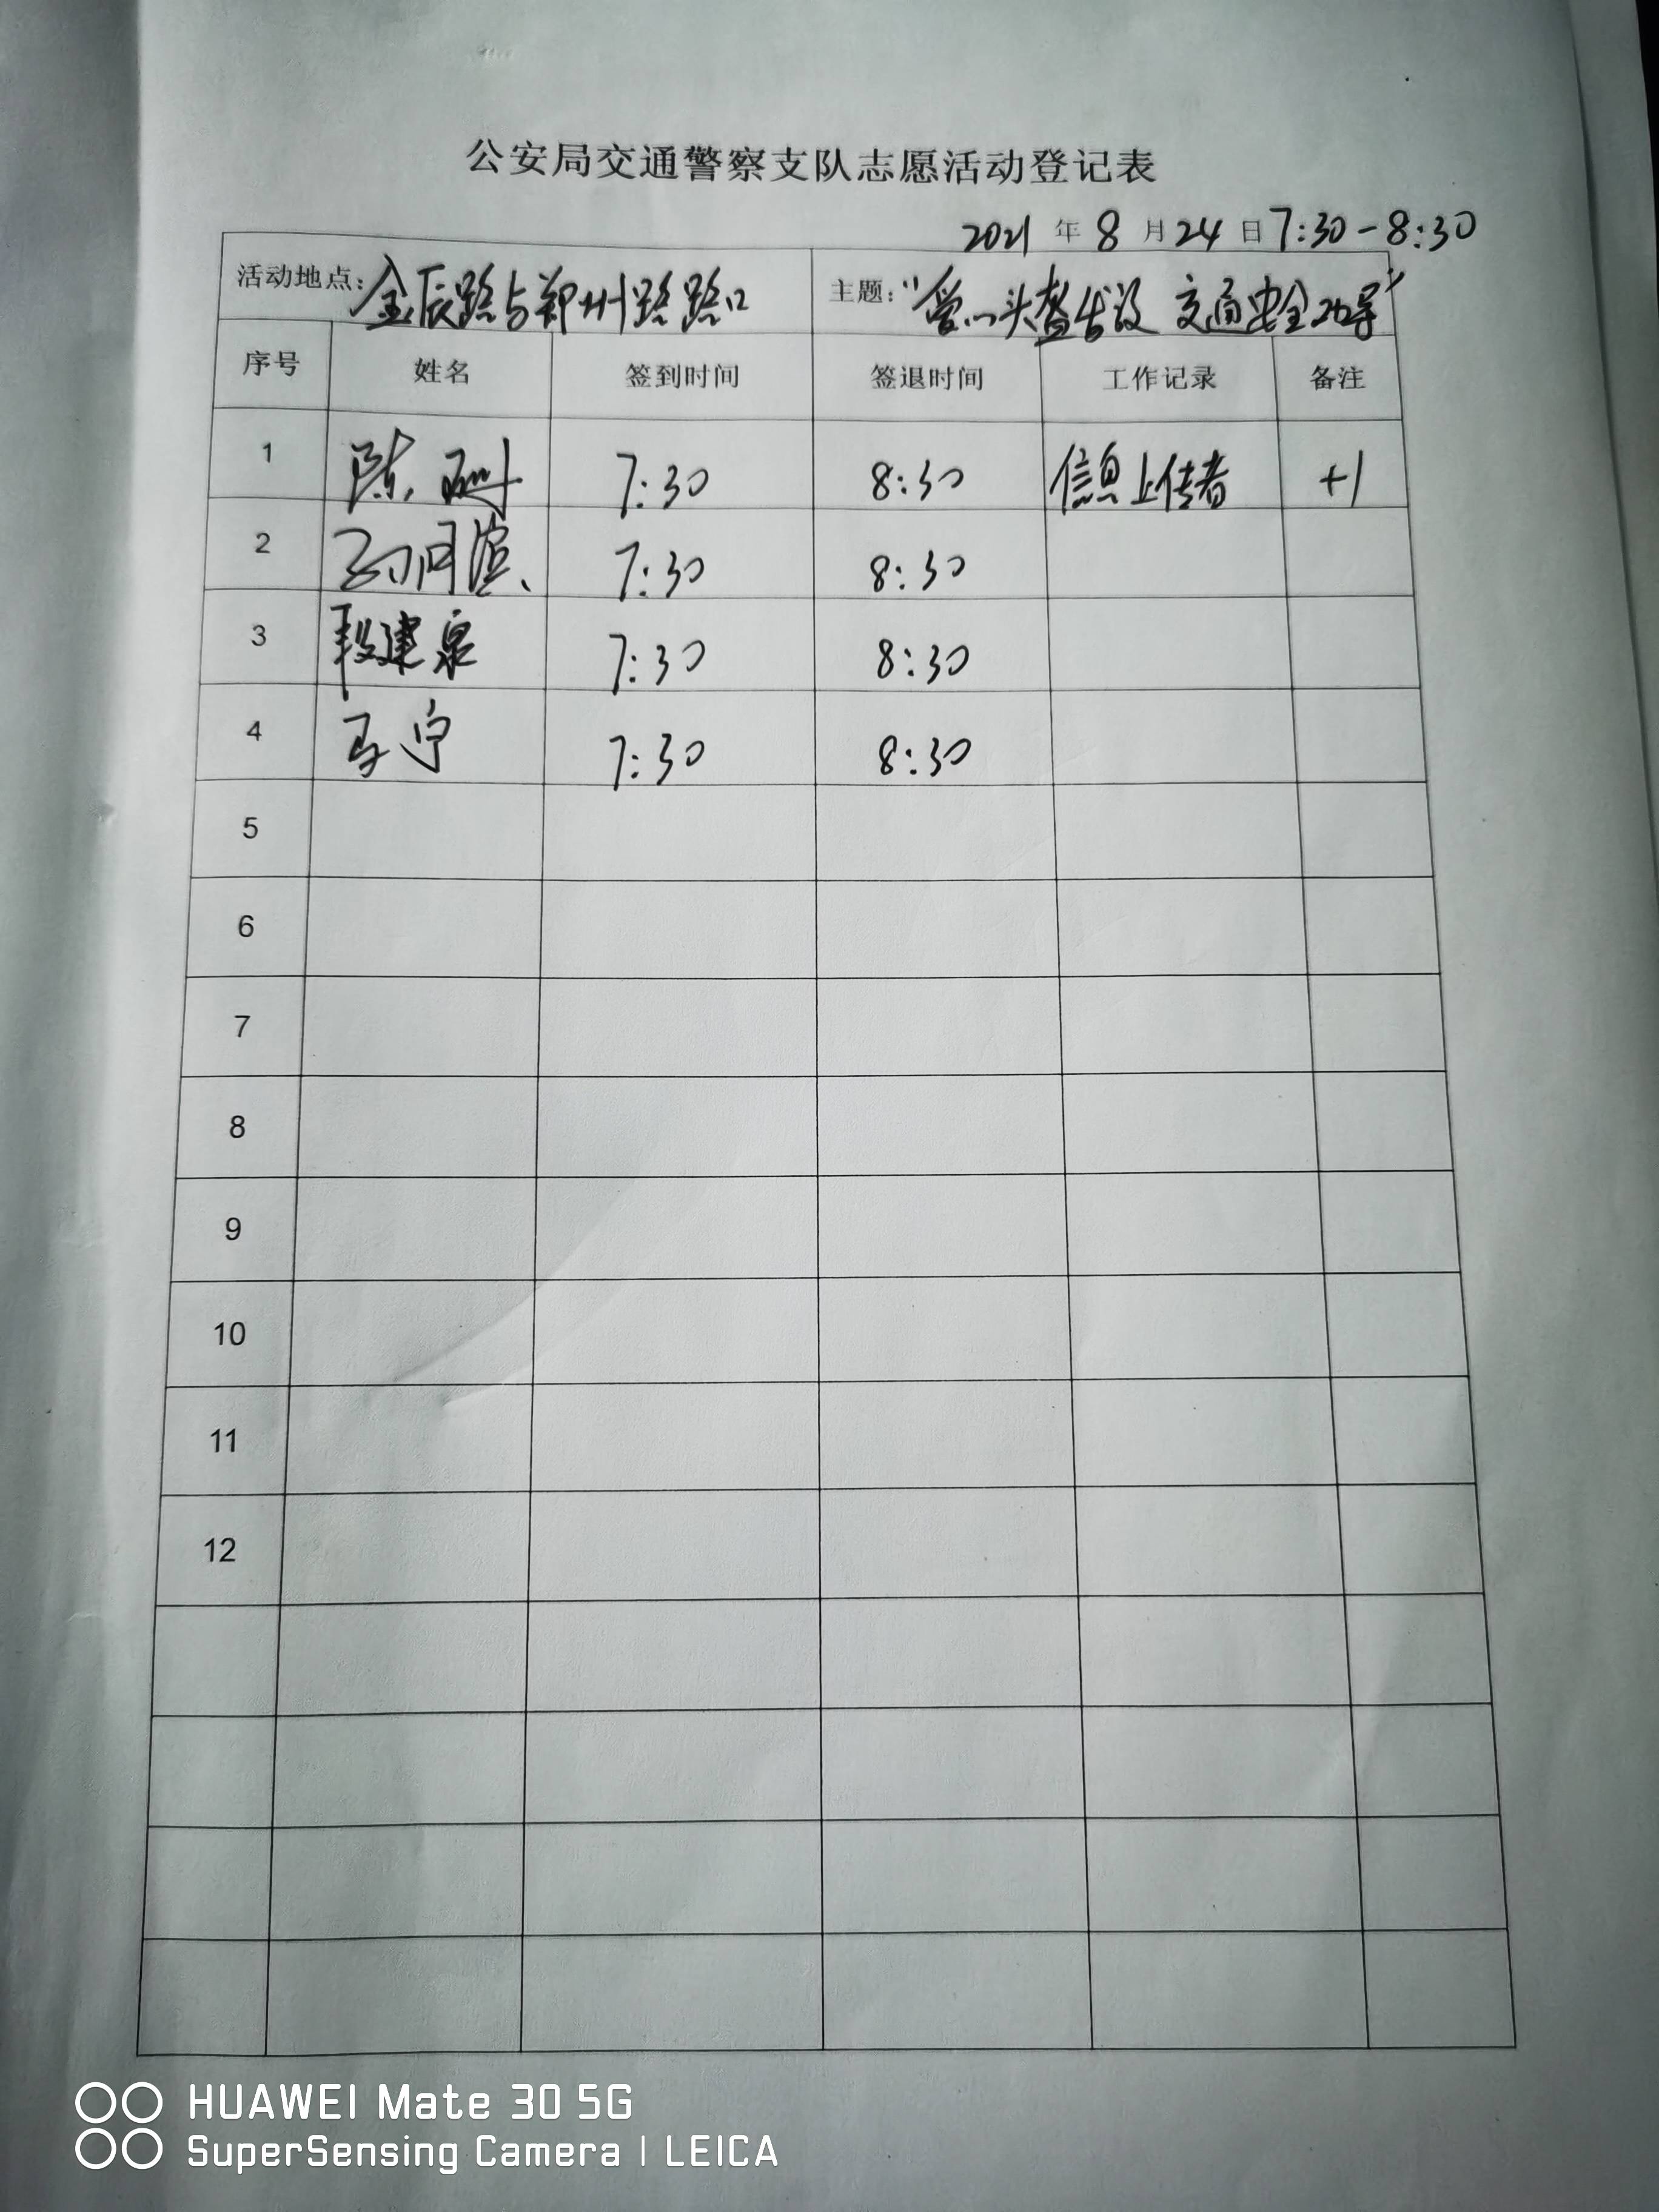 公安局交通警察支队志愿活动登记表
2021 年 8 月 24 日 7:30-8:30
活动地点: 金辰路与郑州路路口 主题: "爱心头盔 交通安全劝导"
序号 姓名 签到时间 签退时间 工作记录 备注
1 陈 珊 7:30 8:30 信息上传者 +1
2 7:30 8:30
3 段建泉 7:30 8:30
4 马宁 7:30 8:30
5
6
7
8
9
10
11
12
HUAWEI Mate 30 5G
SuperSensing Camera | LEICA